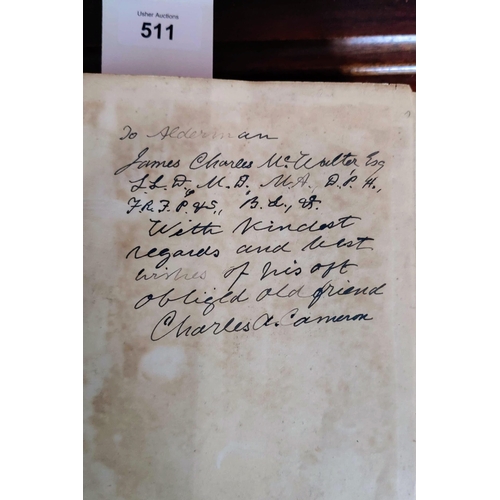 Usher Auctions
511
To Alderman
James Charles McWalter Esq
L.L.D., M.D., M.A., D.P.H.,
F.R.F.P.&S., B.L., &.
With Kindest
regards and best
wishes of his oft
obliged old friend
Charles A. Cameron